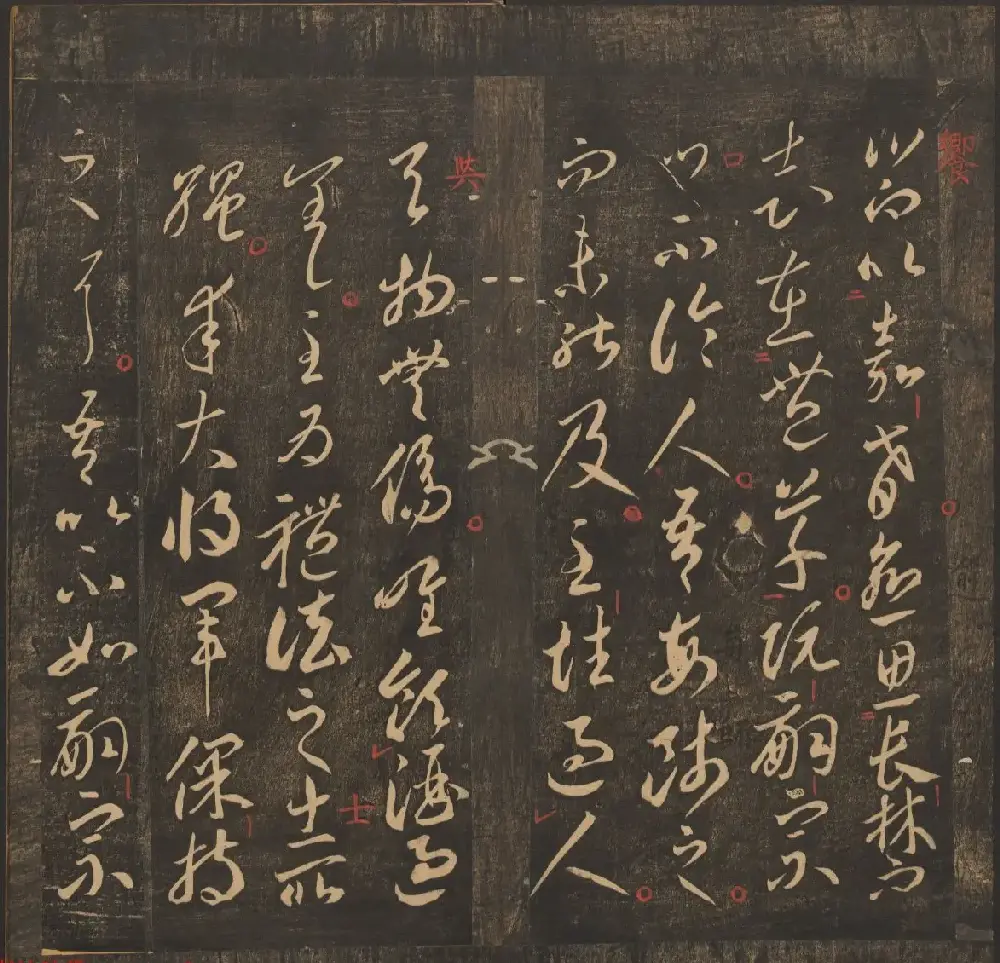 饗以嘉肴逾思長林而
志在豐草阮嗣宗
口不論人吾每師之
而未能及至性過人
與物無傷唯飲酒過
差至為禮法之士所
繩幸大將軍保持
之耳吾以不如嗣宗